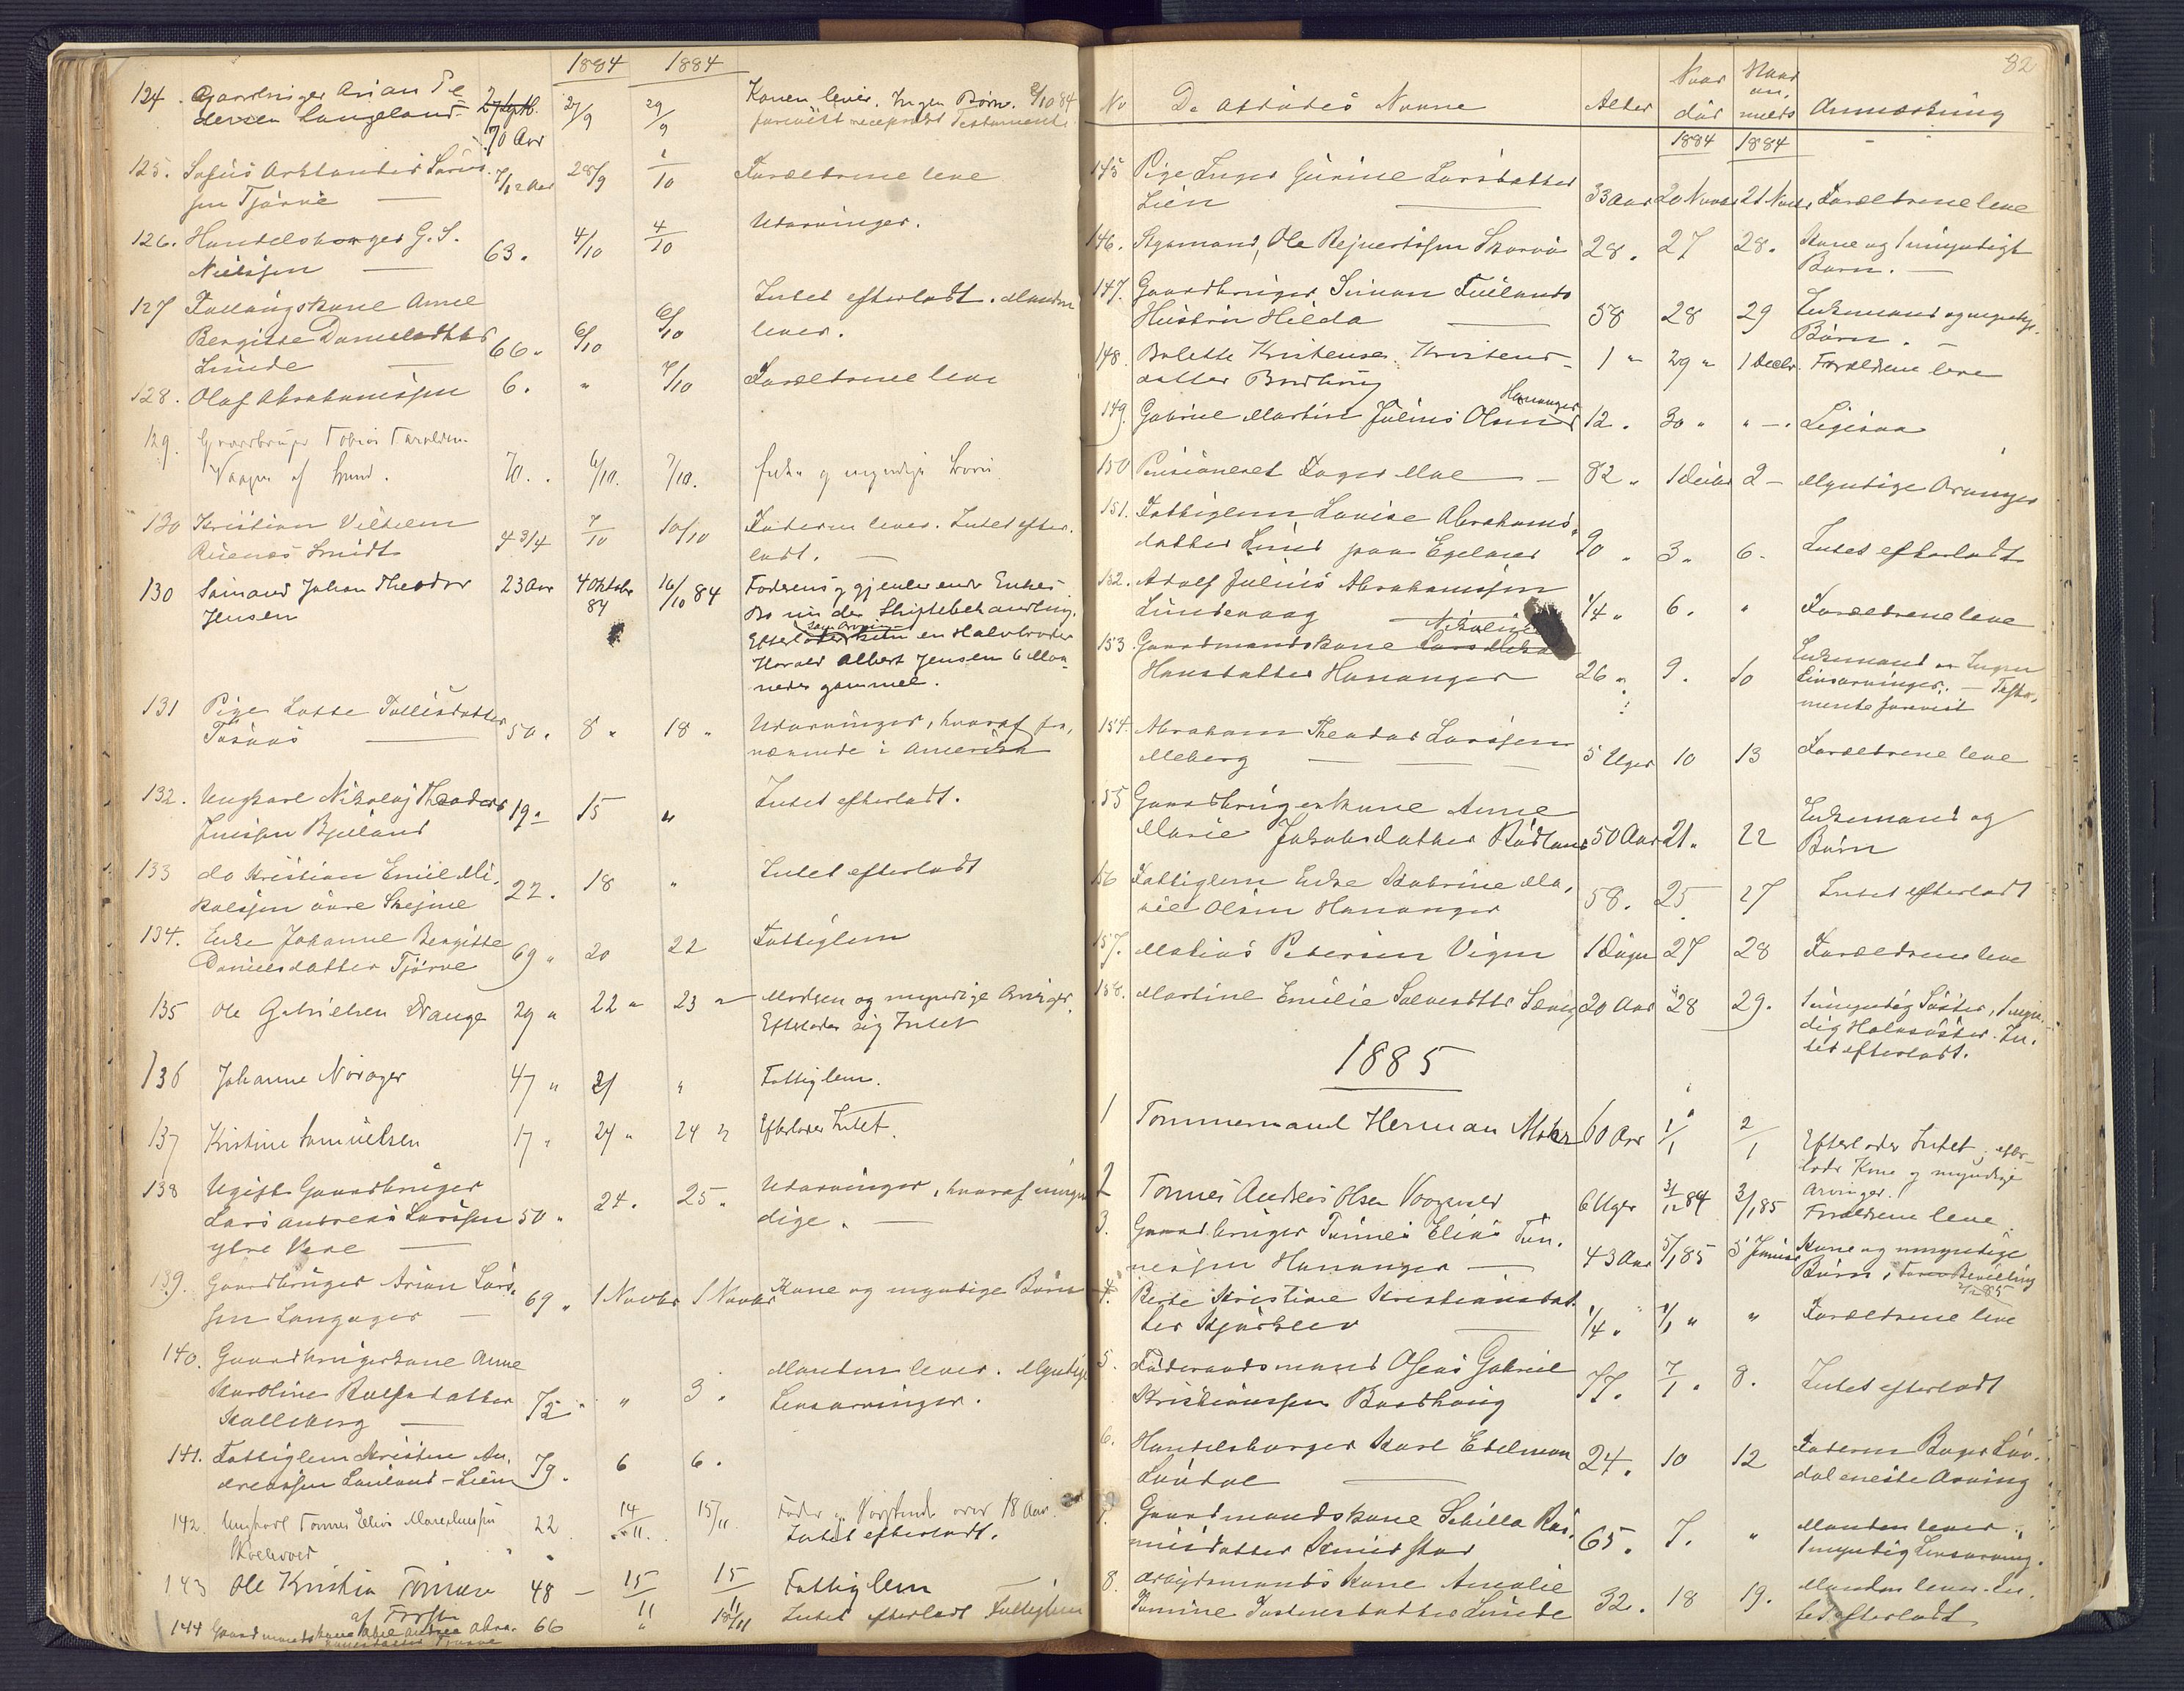 1884 1884
124. Gaardbruger Arian Pe 27 Septb. 27/9 29/9 Konen lever. Ingen Børn. 8/10 84
dersen Langeland 70 Aar foreviist reciprokt Testamente
125. Sofus Arktander Lars 7/12 Aar 28/9 1/10 Forældrene leve
sen Tjørve
126. Handelsborger G. S. 63. 4/10 4/10 Udarvinger.
Nielssen
127 Fattigskone Anne Intet efterladt. Manden
Bergitte Danielsdatter 66. 6/10 6/10 lever.
Lunde
128. Olaf Abrahamssen 6. " 7/10 Forældrene leve
129. Gaardbruger Tobias Taraldsen
Vaagen af Lund. 70. 6/10. 7/10. Enke og myndige Børn
130 Kristian Vilhelm 4 3/4 7/10 10/10 Faderen lever. Intet efter
Smidt ladt.
130 Sømand Johan Theodor 23 Aar 4 Oktober 84 16/10 84 Faderens gjenlevende Enke
Jensen Bo under Skiftebehandling.
som Arving
Efterlader en Halvbroder
Harald Albert Jensen 6 Maa
neder gammel.
131 Pige Lotte Tollisdatter 50. 8 " 18 " Udarvinger, hvoraf fra
værende i Amerika
132. Ungkarl Nikolaj Theodor 19 " 15 " Intet efterladt.
Jensen Bjelland
133 do Kristian Emil Mi 22. 18 " Intet efterladt
kalsen øvre Skejme
134. Enke Johanne Bergitte 69 " 20 22 Fattiglem
Danielsdatter Tjørve
135 Ole Gabrielsen Drange 29 " 22 " 23 " Modren og myndige Arvinger.
Efterlader sig Intet
136 Johanne Norager 47 " 21 " Fattiglem.
137 Kristine Samuelsen 17 " 24 " 24 " Efterlader Intet.
138 Ugift Gaardbruger 50 " 24. 25 " Udarvinger, hvoraf umyn
Lars Andreas Larssen dige.
ytre Vere
139. Gaardbruger Arian Lars 69 " 1 Novbr 1 Novbr Kone og myndige Børn
sen Langager
140. Gaardbrugerkone Anne Manden lever. Myndige
Karoline Rolfsdatter 72 " " 3 " Livsarvinger.
Kalleberg
141. Fattiglem Kristen An 79. 6 6.
dreassen Lauland - Lien
142. Ungkarl Tonnes Elias 22 14/11. 15/11 Fader og Søskende over 18 Aar.
Intet efterladt.
143 Ole Kristian Tonnesen 48 15/11 15/11 Fattiglem
af Farsun
144 Gaardmandskone Abel Andrea Abra 66 " 18/11 Intet efterladt Fattiglem
hamsdatter Tjørve
82
No De Afdødes Navne Alder Naar død Naar anmeldt Anmærkning
1884 1884
145 Pige Inger Gurine Larsdatter 33 Aar 20 Novbr 21 Novbr Forældrene leve
Lien
146. Styrmand, Ole Rejnertssen 28. 27 28. Kone og 1 umyndigt
Barn.
147. Gaardbruger Simon Tuilands 58 28 29 Enkemand og myndige
Hustru Hilda Børn.
148. Bolette Kristense Kristens 1 " 29 " 1 Decbr. Forældrene leve
datter Bordhoug
149. Gabriel Martin Julius Olsen Hananger 12. 30 " " Ligesaa
150 Pensioneret Foged Moe 82 " 1 Decbr 2 Myndige Arvinger
151. Fattiglem Lovise Abrahams
datter Lund paa Egeland 90 " 3 " 6. Intet efterladt
152. Adolf Julius Abrahamssen
Lundevaag 1/4 " 6. " Forældrene leve
153 Gaardmandskone Nikoline Enkemand Ingen
Hansdatter Hananger 26 " 9. 10 Livsarvinger. Testa
mente forevist
154. Abraham Theodor Larssen
Meberg 5 Uger 10 13 Forældrene leve
155 Gaardbrugerkone Anne Enkemand og
Marie Jakobsdatter Rødland 50 Aar 21. 22 Børn
156 Fattiglem Enke Katrine Ma
rie Olsen Hananger 58. 25 27 Intet efterladt
157. Matias Petersen Vigen 1 Døgn 27 28 Forældrene leve
158. Martine Emilie Salvesdtr 20 Aar 28 29. 1 umyndig Søster, 1 umyn
dig Halvsøster. In
tet efterladt.
1885
1 Tømmermand Herman Moe 60 Aar 1/1 2/1 Efterlader Intet; efter
lader Kone og myndige
Arvinger.
2 Tønnes Andreas Olsen Vaagsvold 6 Uger 31/12 84 3/1 85 Forældrene leve.
3. Gaardbruger Tønnes Elias Tøn 43 Aar 5/1 85 5 Januar Kone og umyndige
nessen Hananger Børn, Bevilling
4. Berte Kristine Kristiansdat
ter Kjørrelev 1/4 " 1/1 " " Forældrene leve
5. Føderaadsmand Osmo Gabriel 77. 7/1 " 8. Intet efterladt
Kristianssen Bordhoug
6. Handelsborger Karl Edelman 24. 10 12 Faderen Løv
Løvdal dal eneste Arving
7. Gaardmandskone Sebilla Ras 65. 7. " Manden lever.
musdatter 1 myndig Livsarving.
8. Arbejdsmands Kone Amalie 32. 18 19. Manden lever. In
Tomine Lunde tet efterladt